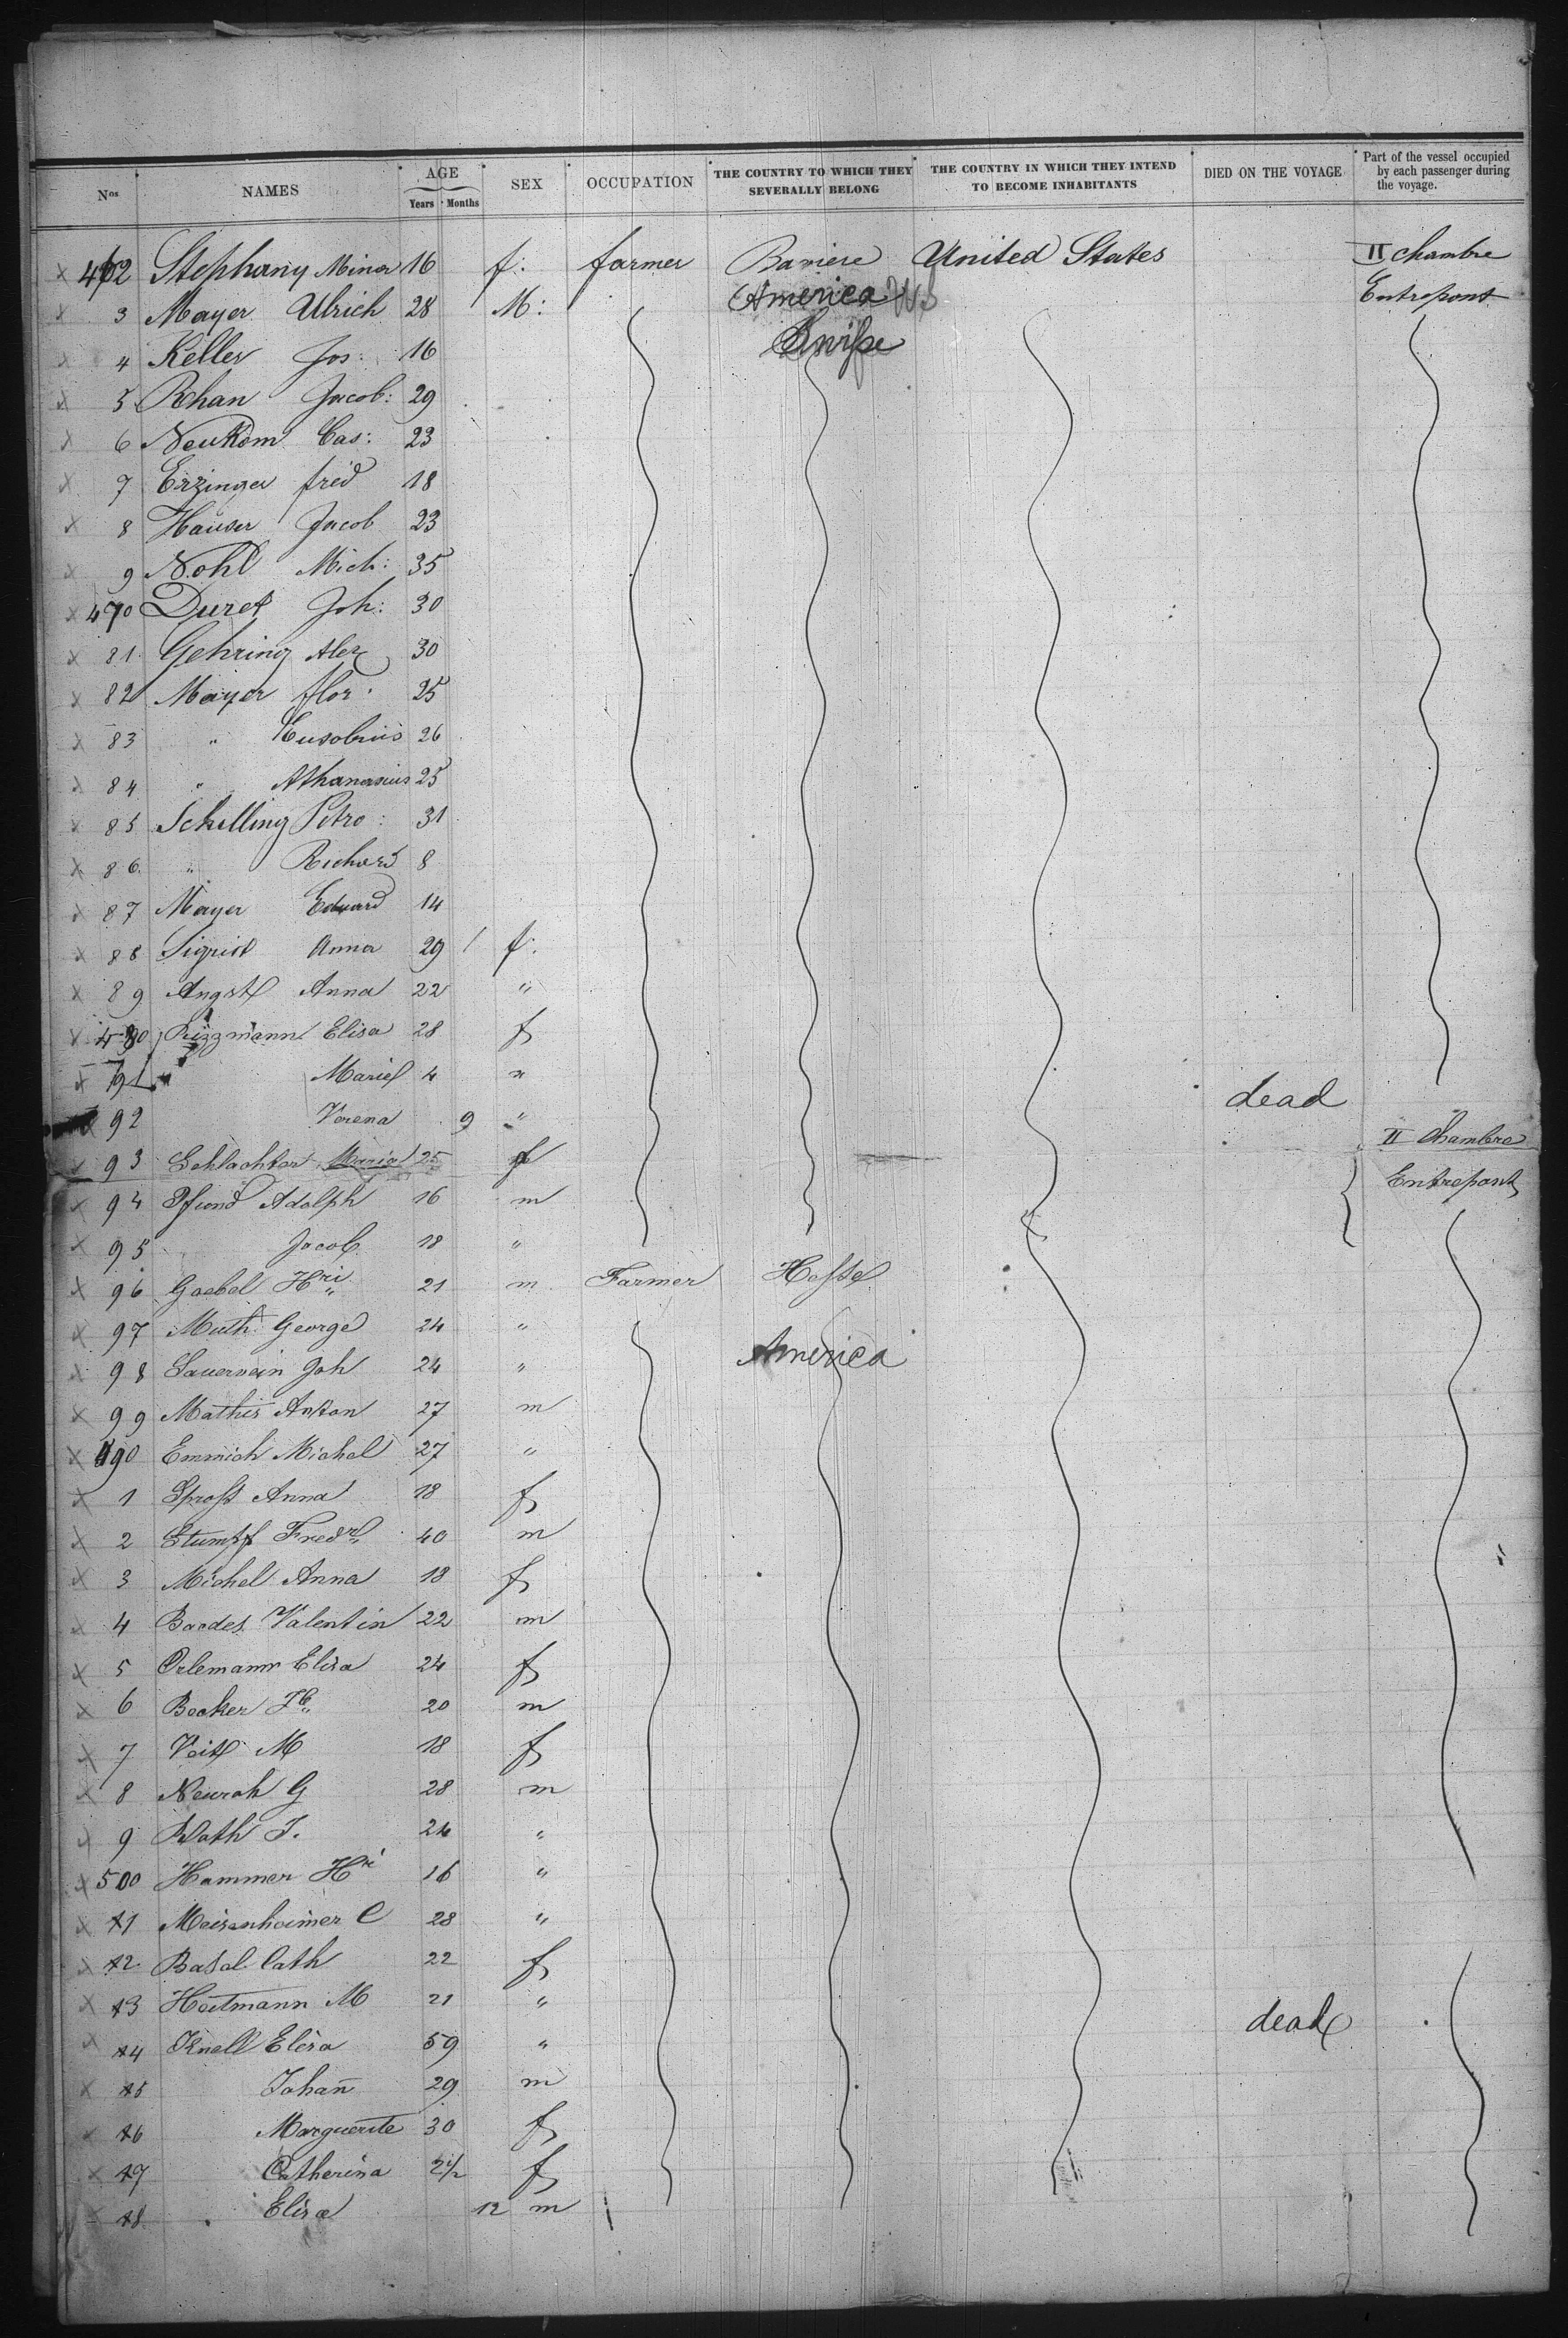 Nos NAMES AGE Years Months SEX OCCUPATION THE COUNTRY TO WHICH THEY SEVERALLY BELONG THE COUNTRY IN WHICH THEY INTEND TO BECOME INHABITANTS DIED ON THE VOYAGE Part of the vessel occupied by each passenger during the voyage.
x 462 Stephany Minor 16 f: farmer Baviere United States II chambre
x 3 Mayer Ulrich 28 M: America Entrepont
x 4 Keller Jos: 16 Swisse
x 5 Rhan Jacob: 29
x 6 Neukom Cas: 23
x 7 Erzinger fried 18
x 8 Hauser Jacob 23
x 9 Nohl Mich: 35
x 470 Duret Joh: 30
x 81. Gehring Alex 30
x 82 Mayer flor: 25
x 83 " Eusobius 26
x 84 " Athanasius 25
x 85 Schilling Petro: 31
x 86. " Richard 8
x 87 Mayer Eduard 14
x 88 Sigrist Anna 29 f:
x 89 Angst Anna 22 "
x 490 Rizzmann Elisa 28 f
x 91 " Marie 4 "
92 Verena 9 " dead
x 93 Schlachter Maria 25 f II Chambre
x 94 Adolph 16 m Entrepont
x 95 Jacob 18 "
x 96 Goebel Hri 21 m Farmer Hesse
x 97 Muth George 24 "
x 98 Sauerwein Joh 24 " America
x 99 Mathis Anton 27 m
x 490 Emmich Michel 27 "
x 1 Sprost Anna 18 f
x 2 Stumpf Fredr 40 m
x 3 Michel Anna 18 f
x 4 Baedes Valentin 22 m
x 5 Orlemann Elisa 24 f
x 6 Becker Jb 20 m
x 7 Veit M 18 f
x 8 Neurah G 28 m
x 9 Roth J. 24 "
x 500 Hammer Hri 16 "
x 1 Meisenheimer C 28 "
x 2 Basel Cath 22 f
x 3 Heitmann M 21 "
x 4 Knell Elisa 59 " dead
x 5 Johan̄ 29 m
x 6 Marguerite 30 f
x 7 Catherina 2 1/2 f
x 8 Elisa 12 m